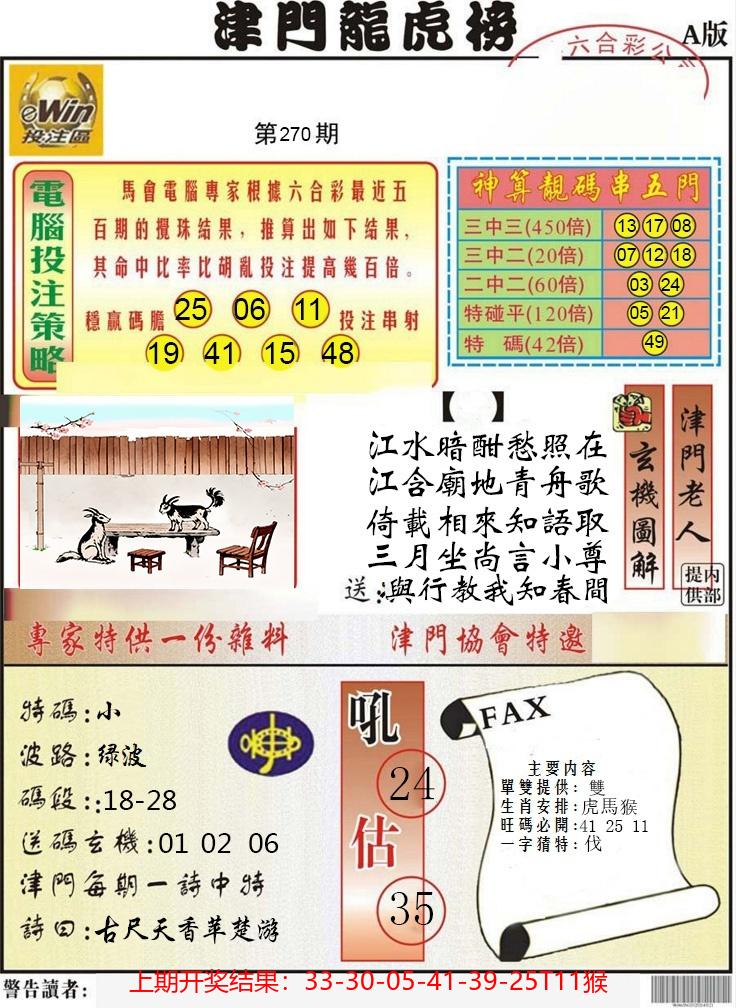 津門龍虎榜
A版
六合彩公
eWin
投注區
第270期
電腦投注策略
馬會電腦專家根據六合彩最近五
百期的攪珠结果，推算出如下结果，
其命中比率比胡亂投注提高幾百倍。
穩贏碼膽 25 06 11 投注串射
19 41 15 48
神算靚碼串五門
三中三(450倍) 13 17 08
三中二(20倍) 07 12 18
二中二(60倍) 03 24
特碰平(120倍) 05 21
特 碼(42倍) 49
【 】
江水暗酣愁照在
江含廟地青舟歌
倚載相來知語取
三月坐尚言小尊
送:與行教我知春間
玄機圖解
津門老人
内部提供
專家特供一份雜料
津門協會特邀
特碼:小
波路:绿波
碼段::18-28
送碼玄機:01 02 06
津門每期一詩中特
詩曰:古尺天香苹楚游
吼
24
估
35
FAX
主要内容
單雙提供: 雙
生肖安排:虎馬猴
旺码必開:41 25 11
一字猜特:伐
警告讀者:
上期开奖结果：33-30-05-41-39-25T11猴